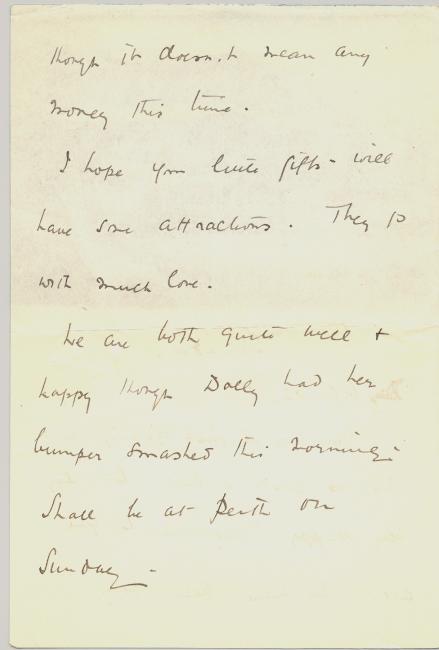 though it doesn't mean any
money this time.
I hope your little gifts - will
have some attractions. They go
with much love.
We are both quite well +
happy though Dolly had her
bumper smashed this morning;-
Shall be at Perth on
Sunday -